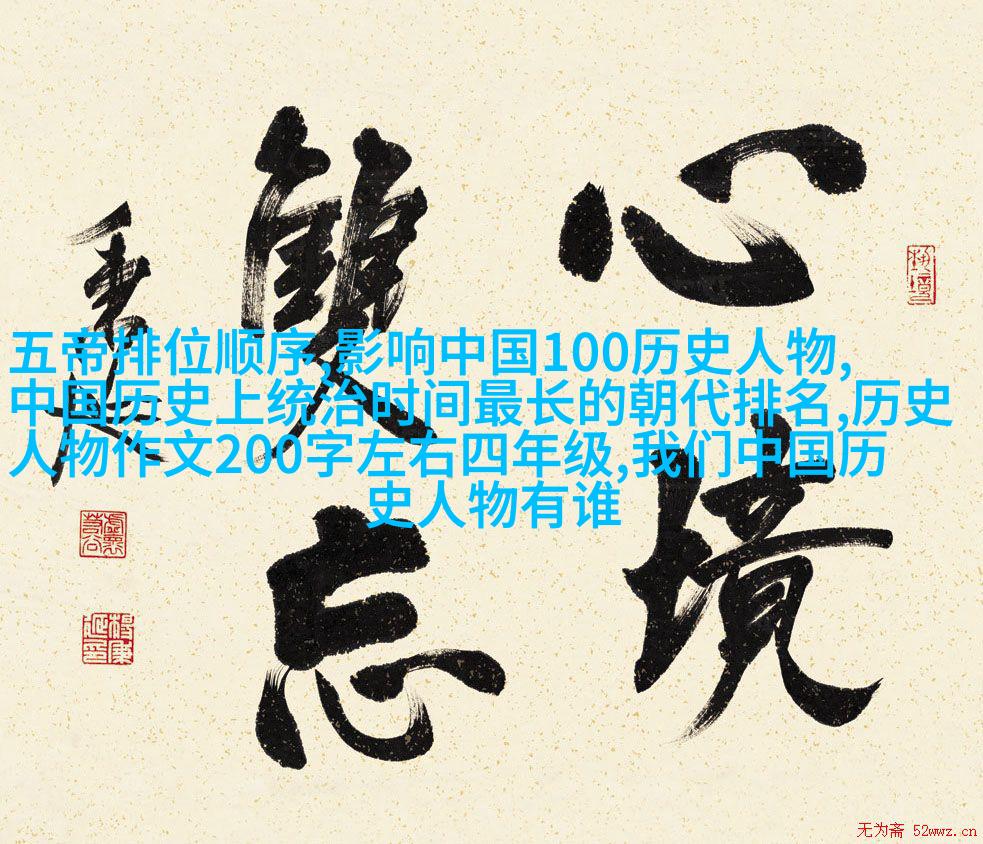 心境
雙忘
五帝排位顺序,影响中国100历史人物,
中国历史上统治时间最长的朝代排名,历史
人物作文200字左右四年级,我们中国历
史人物有谁
无为斋 52wwz.cn